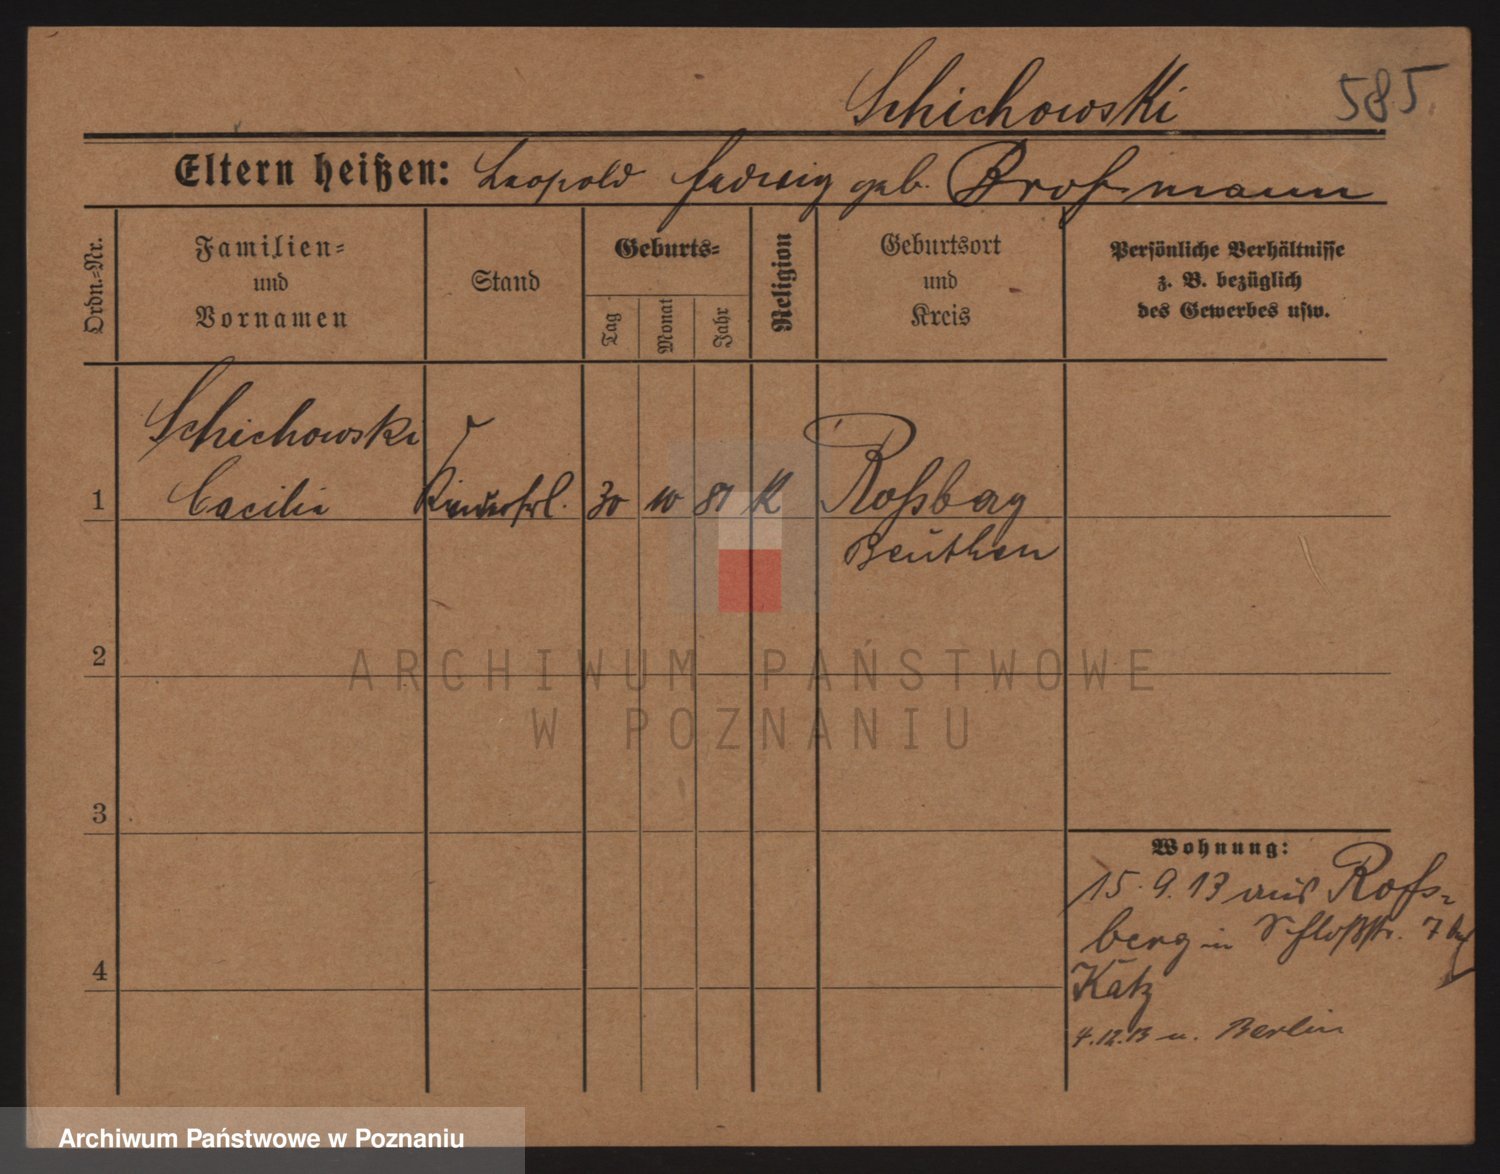 Schichowski
585.
Eltern heißen: Leopold Hedwig geb. Broßmann
Ordn.=Nr.
Familien=
und
Vornamen
Stand
Geburts=
Tag
Monat
Jahr
Religion
Geburtsort
und
Kreis
Persönliche Verhältnisse
z. B. bezüglich
des Gewerbes usw.
1
Schichowski
Cacilie
Kinderfrl.
30
10
87
K
Roßberg
Beuthen
2
ARCHIWUM PAŃSTWOWE
W POZNANIU
3
Wohnung:
15.9.13 aus Roß-
berg in Schloßstr. 7 bei
4
Katz
4.12.13 n. Berlin
Archiwum Państwowe w Poznaniu